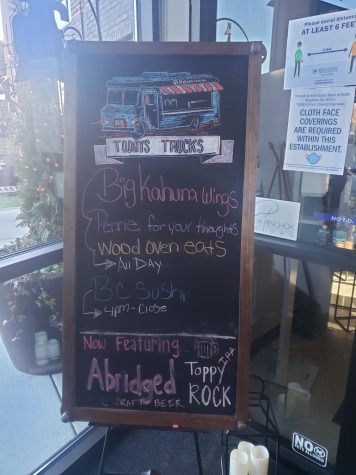 TODAYS TRUCKS
Big Kahuna Wings
Penne for your thoughts
Wood oven eats
All DAY
B.C. Sushi
4pm - Close
Now Featuring
Abridged
CRAFT BEER
Toppy
ROCK
Please
social
AT LEAST 6 FEET
CLOTH FACE
COVERINGS
ARE REQUIRED
WITHIN THIS
ESTABLISHMENT.
NO